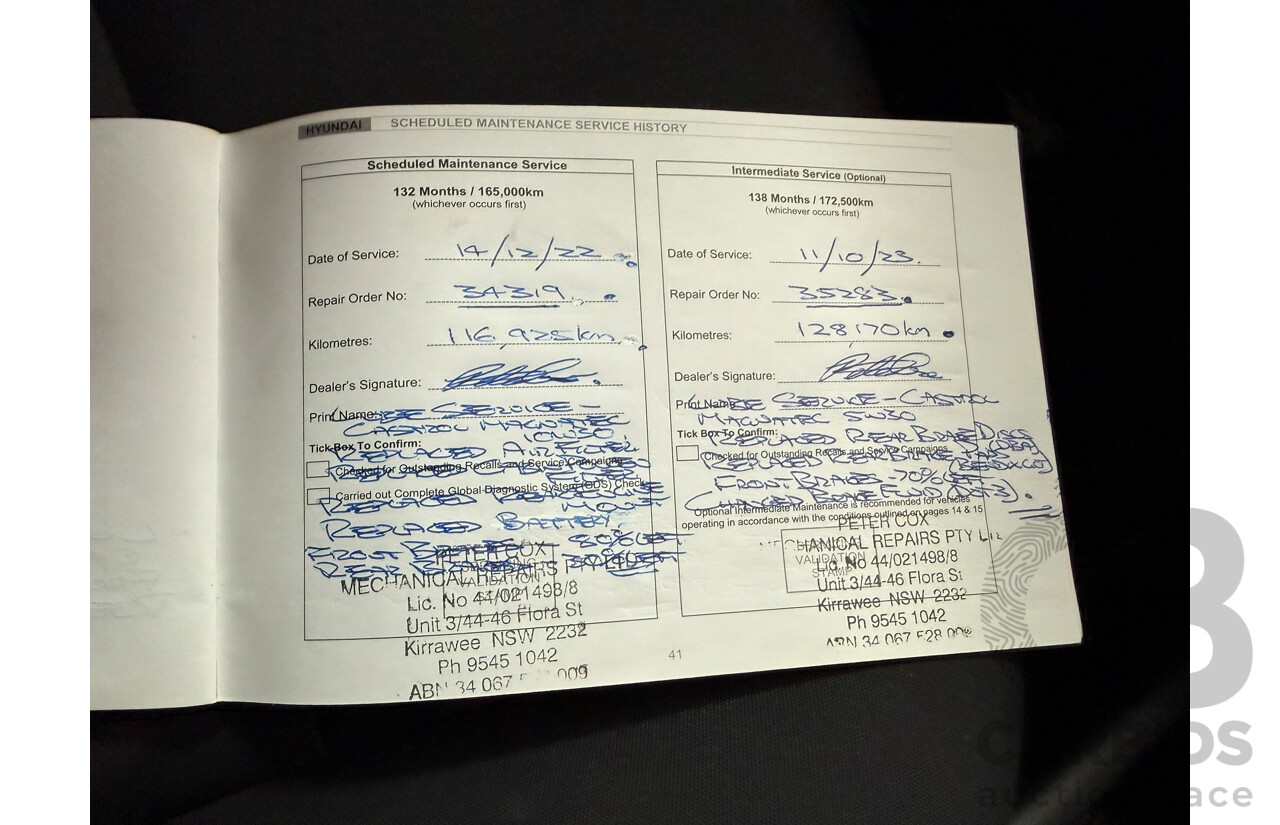 HYUNDAI SCHEDULED MAINTENANCE SERVICE HISTORY
Scheduled Maintenance Service
132 Months / 165,000km
(whichever occurs first)
Date of Service: 14/12/22
Repair Order No: 34319
Kilometres: 116,925km
Dealer's Signature:
Print Name: LUBE SERVICE -
CASTROL MAGNATEC
10W30
Tick Box To Confirm:
REPLACED AIR FILTER
Checked for Outstanding Recalls and Service Campaigns
REPLACED
Carried out Complete Global Diagnostic System (GDS) Check
REPLACED REAR ENGINE
MOUNT
REPLACED BATTERY.
FRONT BRAKES 80% LEFT
REAR
PETER COX
MECHANICAL REPAIRS PTY LTD
VALIDATION
STAMP
Lic. No 44/021498/8
Unit 3/44-46 Flora St
Kirrawee NSW 2232
Ph 9545 1042
ABN 34 067 009
Intermediate Service (Optional)
138 Months / 172,500km
(whichever occurs first)
Date of Service: 11/10/23.
Repair Order No: 35283.
Kilometres: 128170km
Dealer's Signature:
Print Name: LUBE SERVICE - CASTROL
MAGNATEC 5W30
Tick Box To Confirm:
REPLACED REAR BRAKE DISCS
(DBA)
Checked for Outstanding Recalls and Service Campaigns
REPLACED REAR BRAKE PADS
(BENDIX CT)
FRONT BRAKES - 70% LEFT
CHANGED BRAKE FLUID
Optional Intermediate Maintenance is recommended for vehicles
operating in accordance with the conditions outlined on pages 14 & 15
PETER COX
CHANICAL REPAIRS PTY L
VALIDATION
STAMP
Lic. No 44/021498/8
Unit 3/44-46 Flora St
Kirrawee NSW 2232
Ph 9545 1042
ABN 34 067 528 009
41